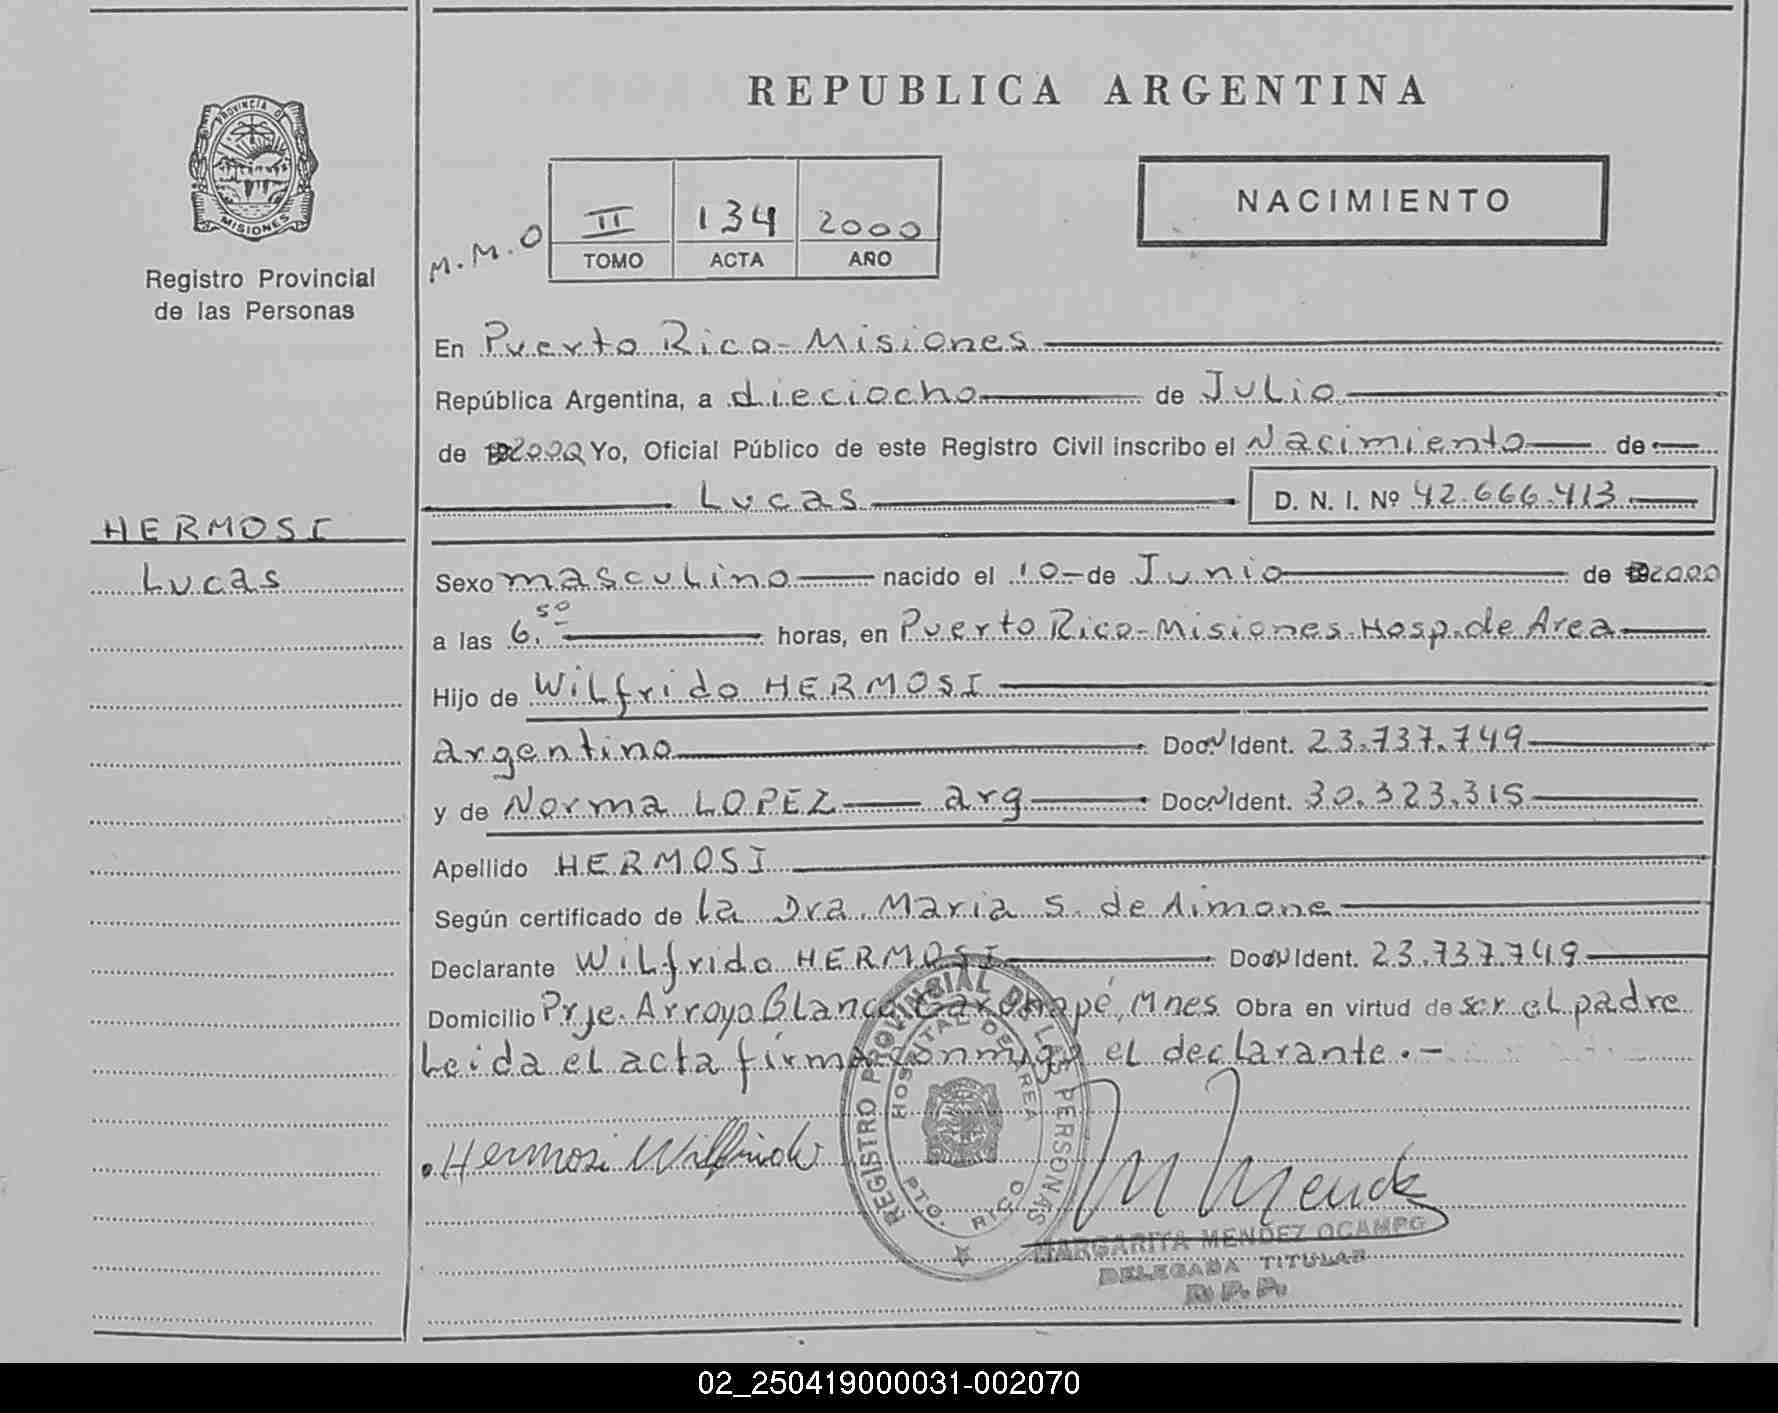 REPUBLICA ARGENTINA
PROVINCIA DE
MISIONES
Registro Provincial
de las Personas
M.M.O
II 134 2000
TOMO ACTA AÑO
NACIMIENTO
En Puerto Rico - Misiones
República Argentina, a dieciocho de Julio
de 2000 Yo, Oficial Público de este Registro Civil inscribo el Nacimiento de
Lucas D. N. I. Nº 42.666.413
HERMOSI
Lucas
Sexo masculino nacido el 10 - de Junio de 2000
a las 6.50 horas, en Puerto Rico - Misiones. Hosp. de Area
Hijo de Wilfrido HERMOSI
argentino Doc. N Ident. 23.737.749
y de Norma LOPEZ arg Doc. N Ident. 30.323.315
Apellido HERMOSI
Según certificado de la Dra. Maria S. de Aimone
Declarante Wilfrido HERMOSI Doc. N Ident. 23.737.749
Domicilio Prje. Arroyo Blanco Garuhapé, Mnes Obra en virtud de ser el padre
Leida el acta firma conmigo el declarante. -
Hermosi Wilfrido
REGISTRO PROVINCIAL DE LAS PERSONAS
HOSPITAL DE AREA
PTO. RICO
M Mendez
MARGARITA MENDEZ OCAMPO
DELEGADA TITULAR
R. P. P.
02_250419000031-002070